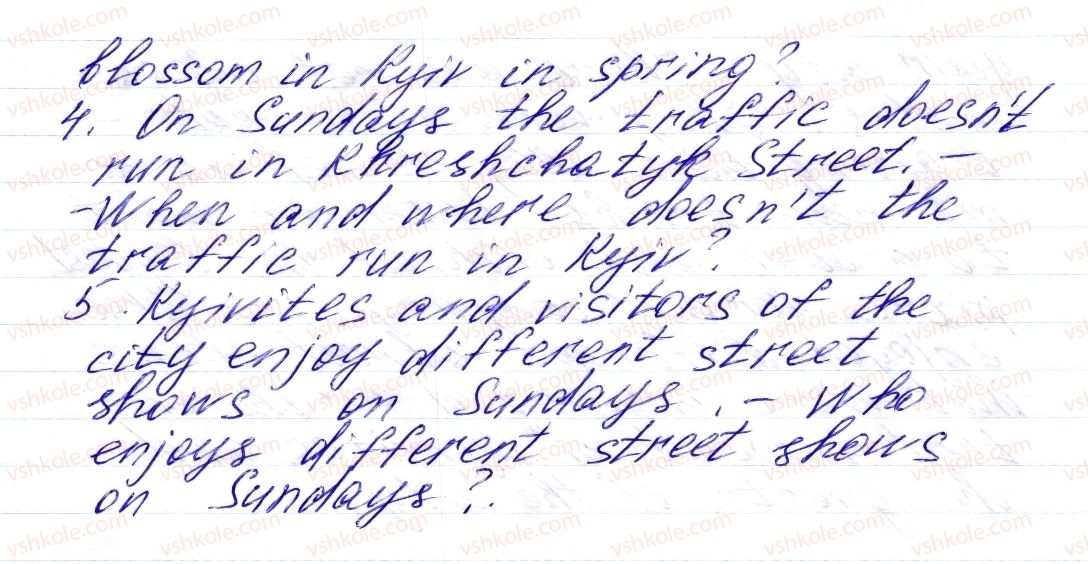 blossom in Kyiv in spring?
4. On Sundays the traffic doesn't
run in Khreshchatyk Street. –
– When and where doesn't the
traffic run in Kyiv?
5. Kyivites and visitors of the
city enjoy different street
shows on Sundays. – Who
enjoys different street shows
on Sundays?.